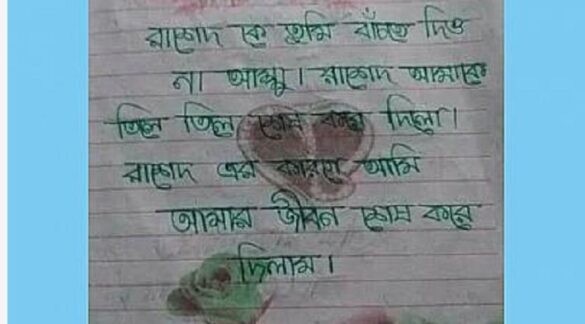 রাশেদ কে তুমি বাঁচতে দিও
না আম্মু। রাশেদ আমাকে
তিলে তিলে শেষ করে দিলো।
রাশেদ এর কারণে আমি
আমার জীবন শেষ করে
দিলাম।